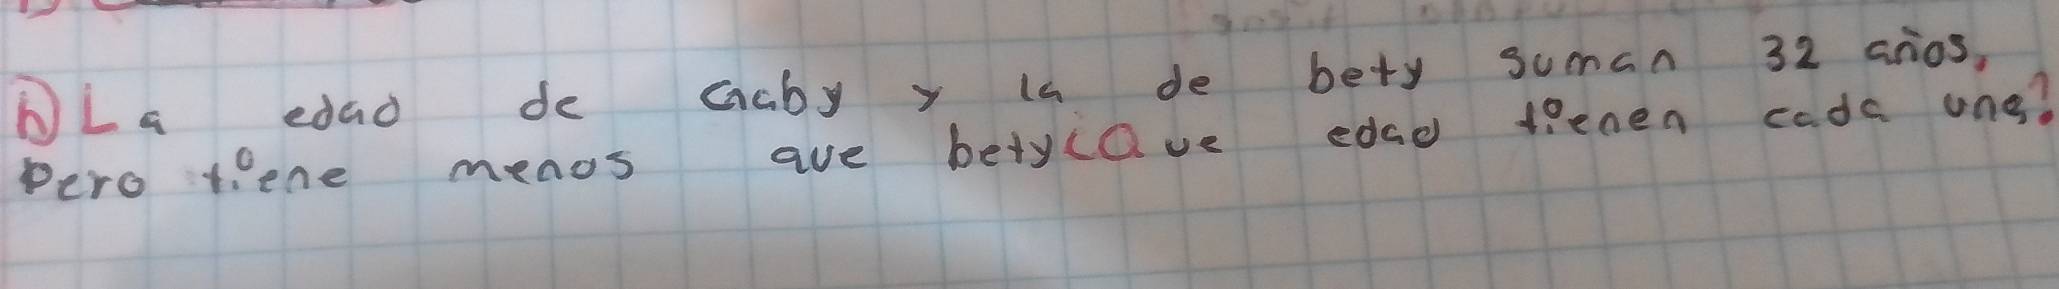 b) La edad de Gaby y la de bety suman 32 años,
Pero tiene menos que bety ¿Que edad tienen cada una?